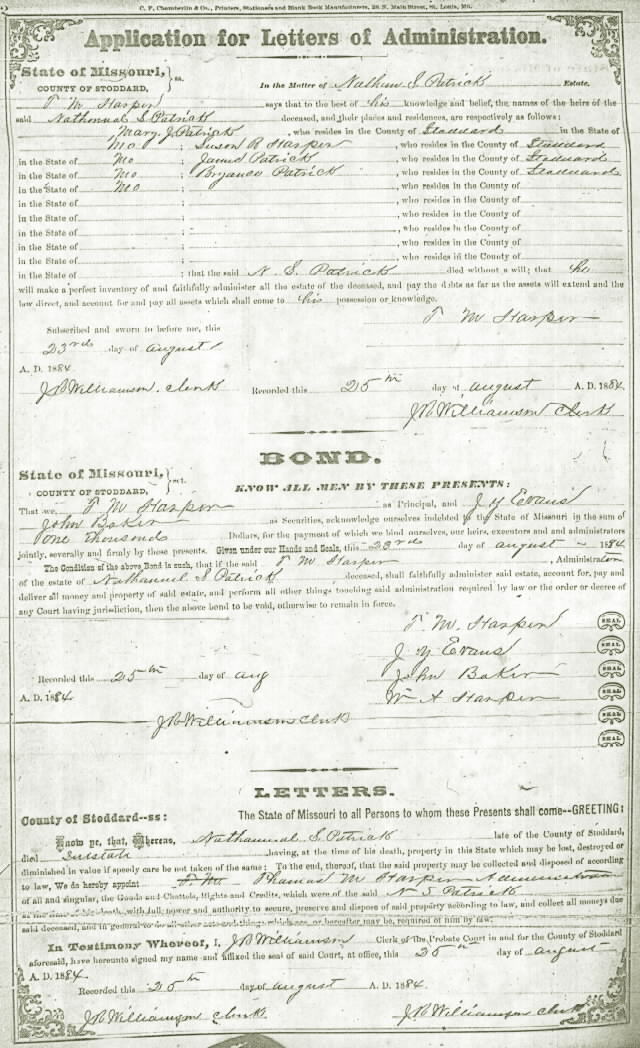 C. F. Chamberlin & Co., Printers, Stationers and Blank Book Manufacturers, 28 N. Main Street, St. Louis, Mo.
Application for Letters of Administration.
State of Missouri, } ss.
COUNTY OF STODDARD,
In the Matter of Nathun S. Patrick Estate.
T M Harper says that to the best of his knowledge and belief, the names of the heirs of the
said Nathnual S Patrick deceased, and their places and residences, are respectively as follows:
Mary J Patrick, who resides in the County of Stoddard in the State of
Mo Suson R Harper, who resides in the County of Stoddard
in the State of Mo James Patrick, who resides in the County of Stoddard
in the State of Mo Patrick, who resides in the County of Stoddard
in the State of Mo ; , who resides in the County of
in the State of ; , who resides in the County of
in the State of ; , who resides in the County of
in the State of ; , who resides in the County of
in the State of ; , who resides in the County of
in the State of ; , who resides in the County of
in the State of ; that the said N. S. Patrick died without a will; that he
will make a perfect inventory of and faithfully administer all the estate of the deceased, and pay the debts as far as the assets will extend and the
law direct, and account for and pay all assets which shall come to his possession or knowledge.
T M Harper
Subscribed and sworn to before me, this
23rd day of august
A. D. 1884
J R Williamson. clerk Recorded this 25th day of august A. D. 1884
J R Williamson Clerk
BOND.
State of Missouri, } sct.
COUNTY OF STODDARD,
KNOW ALL MEN BY THESE PRESENTS:
That we, T M Harper as Principal, and J Y Evans
John Baker as Securities, acknowledge ourselves indebted to the State of Missouri in the sum of
one thousand Dollars, for the payment of which we bind ourselves, our heirs, executors and and administrators
jointly, severally and firmly by these presents. Given under our Hands and Seals, this 23rd day of august 1884
The Condition of the above Bond is such, that if the said T M Harper, Administrator
of the estate of Nathanuel S Patrick deceased, shall faithfully administer said estate, account for, pay and
deliver all money and property of said estate, and perform all other things touching said administration required by law or the order or decree of
any Court having jurisdiction, then the above bond to be void, otherwise to remain in force.
T M Harper SEAL
J Y Evans SEAL
John Baker SEAL
Recorded this 25th day of aug
W A Harper SEAL
A. D. 1884
J R Williamson Clerk SEAL
SEAL
LETTERS.
County of Stoddard--ss: The State of Missouri to all Persons to whom these Presents shall come--GREETING:
Know ye, that, Whereas, Nathanual S Patrick late of the County of Stoddard,
died having, at the time of his death, property in this State which may be lost, destroyed or
diminished in value if speedy care be not taken of the same: To the end, thereof, that the said property may be collected and disposed of according
to law, We do hereby appoint Thamas M Harper
of all and singular, the Goods and Chattels, Rights and Credits, which were of the said N S Patrick
at the time of his death, with full power and authority to secure, preserve and dispose of said property according to law, and collect all moneys due
said deceased, and in general to do all other acts and things which are, or hereafter may be, required of him by law:
In Testimony Whereof, I, J R Williamson Clerk of the Probate Court in and for the County of Stoddard
aforesaid, have hereunto signed my name and affixed the seal of said Court, at office, this 25th day of august
A. D. 1884.
Recorded this 25th day of august A. D. 1884.
J R Williamson clerk J R Williamson Clerk